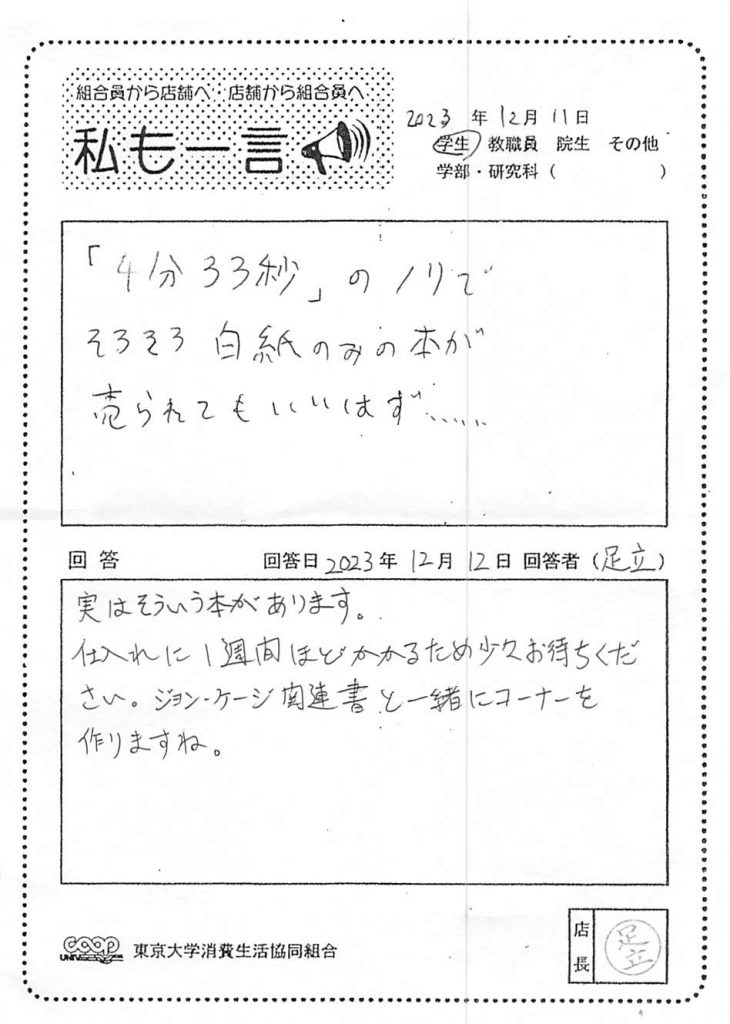 組合員から店舗へ・店舗から組合員へ
私も一言
2023年12月11日
学生 教職員 院生 その他
学部・研究科（　　　　　）
「4分33秒」のノリで
そろそろ白紙のみの本が
売られてもいいはず......
回答 回答日2023年12月12日 回答者（足立）
実はそういう本があります。
仕入れに1週間ほどかかるため少々お待ちくだ
さい。ジョン・ケージ関連書と一緒にコーナーを
作りますね。
店長 足立
coop 東京大学消費生活協同組合